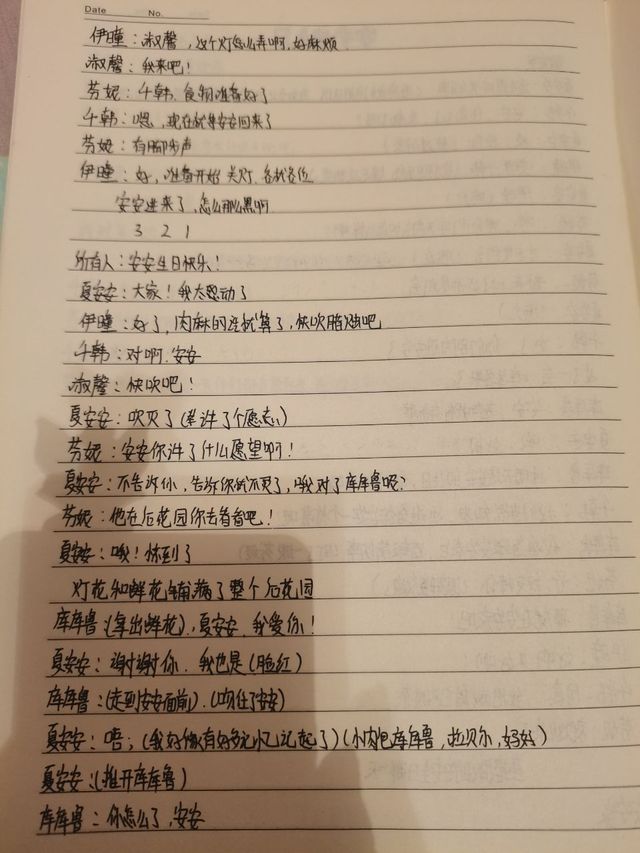 Date No.
伊瞳：淑馨，这个灯怎么弄啊，好麻烦
淑馨：我来吧！
芬妮：千韩，食物准备好了
千韩：嗯，现在就等安安回来了
芬妮：有脚步声
伊瞳：好，准备开始 关灯、各就各位
安安进来了，怎么那么黑啊
3 2 1
所有人：安安生日快乐！
夏安安：大家！我太感动了
伊瞳：好了，肉麻的话就算了，快吹腊烛吧
千韩：对啊，安安
淑馨：快吹吧！
夏安安：吹灭了(许了个愿志)
芬妮：安安你许了什么愿望啊！
夏安安：不告诉你，告诉你就不灵了，哦对了库库鲁呢？
芬妮：他在后花园你去看看吧！
夏安安：哦！知到了
灯花和鲜花铺满了整个后花园
库库鲁：(拿出鲜花)，夏安安，我爱你！
夏安安：谢谢你，我也是(脸红)
库库鲁：(走到安安面前)，(吻住了安安)
夏安安：唔；(我好像有好多记忆记起了)(小肉包库库鲁，拉贝尔，妈妈)
夏安安：(推开库库鲁)
库库鲁：你怎么了，安安